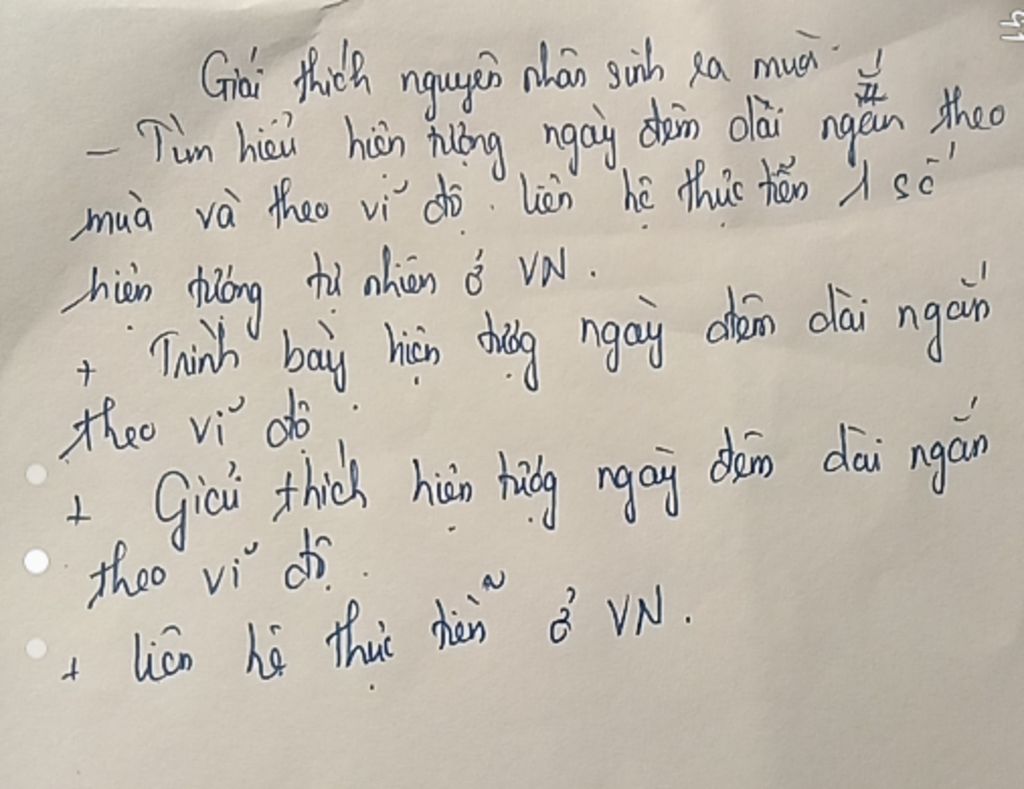 Giải thích nguyên nhân sinh ra mùa.
- Tìm hiểu hiện tượng ngày đêm dài ngắn theo
mùa và theo vĩ độ. liên hệ thực tiễn 1 số
hiện tượng tự nhiên ở VN.
+ Trình bày hiện tượng ngày đêm dài ngắn
theo vĩ độ.
+ Giải thích hiện tượng ngày đêm dài ngắn
theo vĩ độ.
+ liên hệ thực tiễn ở VN.